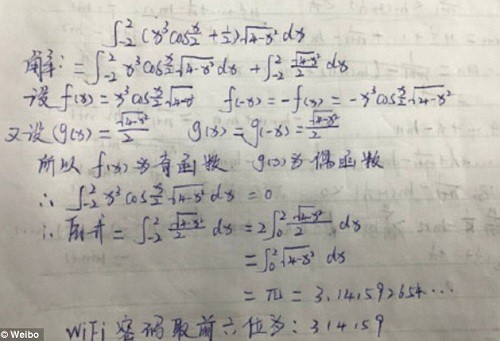 ∫₋₂² (x³cos x/2 + 1/2)√(4-x²) dx
解：= ∫₋₂² x³cos x/2 √(4-x²) dx + ∫₋₂² √(4-x²)/2 dx
设 f(x) = x³cos x/2 √(4-x²) f(-x) = -f(x) = -x³cos x/2 √(4-x²)
又设 g(x) = √(4-x²)/2 g(x) = g(-x) = √(4-x²)/2
所以 f(x)为奇函数 g(x)为偶函数
∴ ∫₋₂² x³cos x/2 √(4-x²) dx = 0
∴ 原式 = ∫₋₂² √(4-x²)/2 dx = 2∫₀² √(4-x²)/2 dx
= ∫₀² √(4-x²) dx
= π = 3.141592654···
WiFi 密码取前六位为：314159
© Weibo